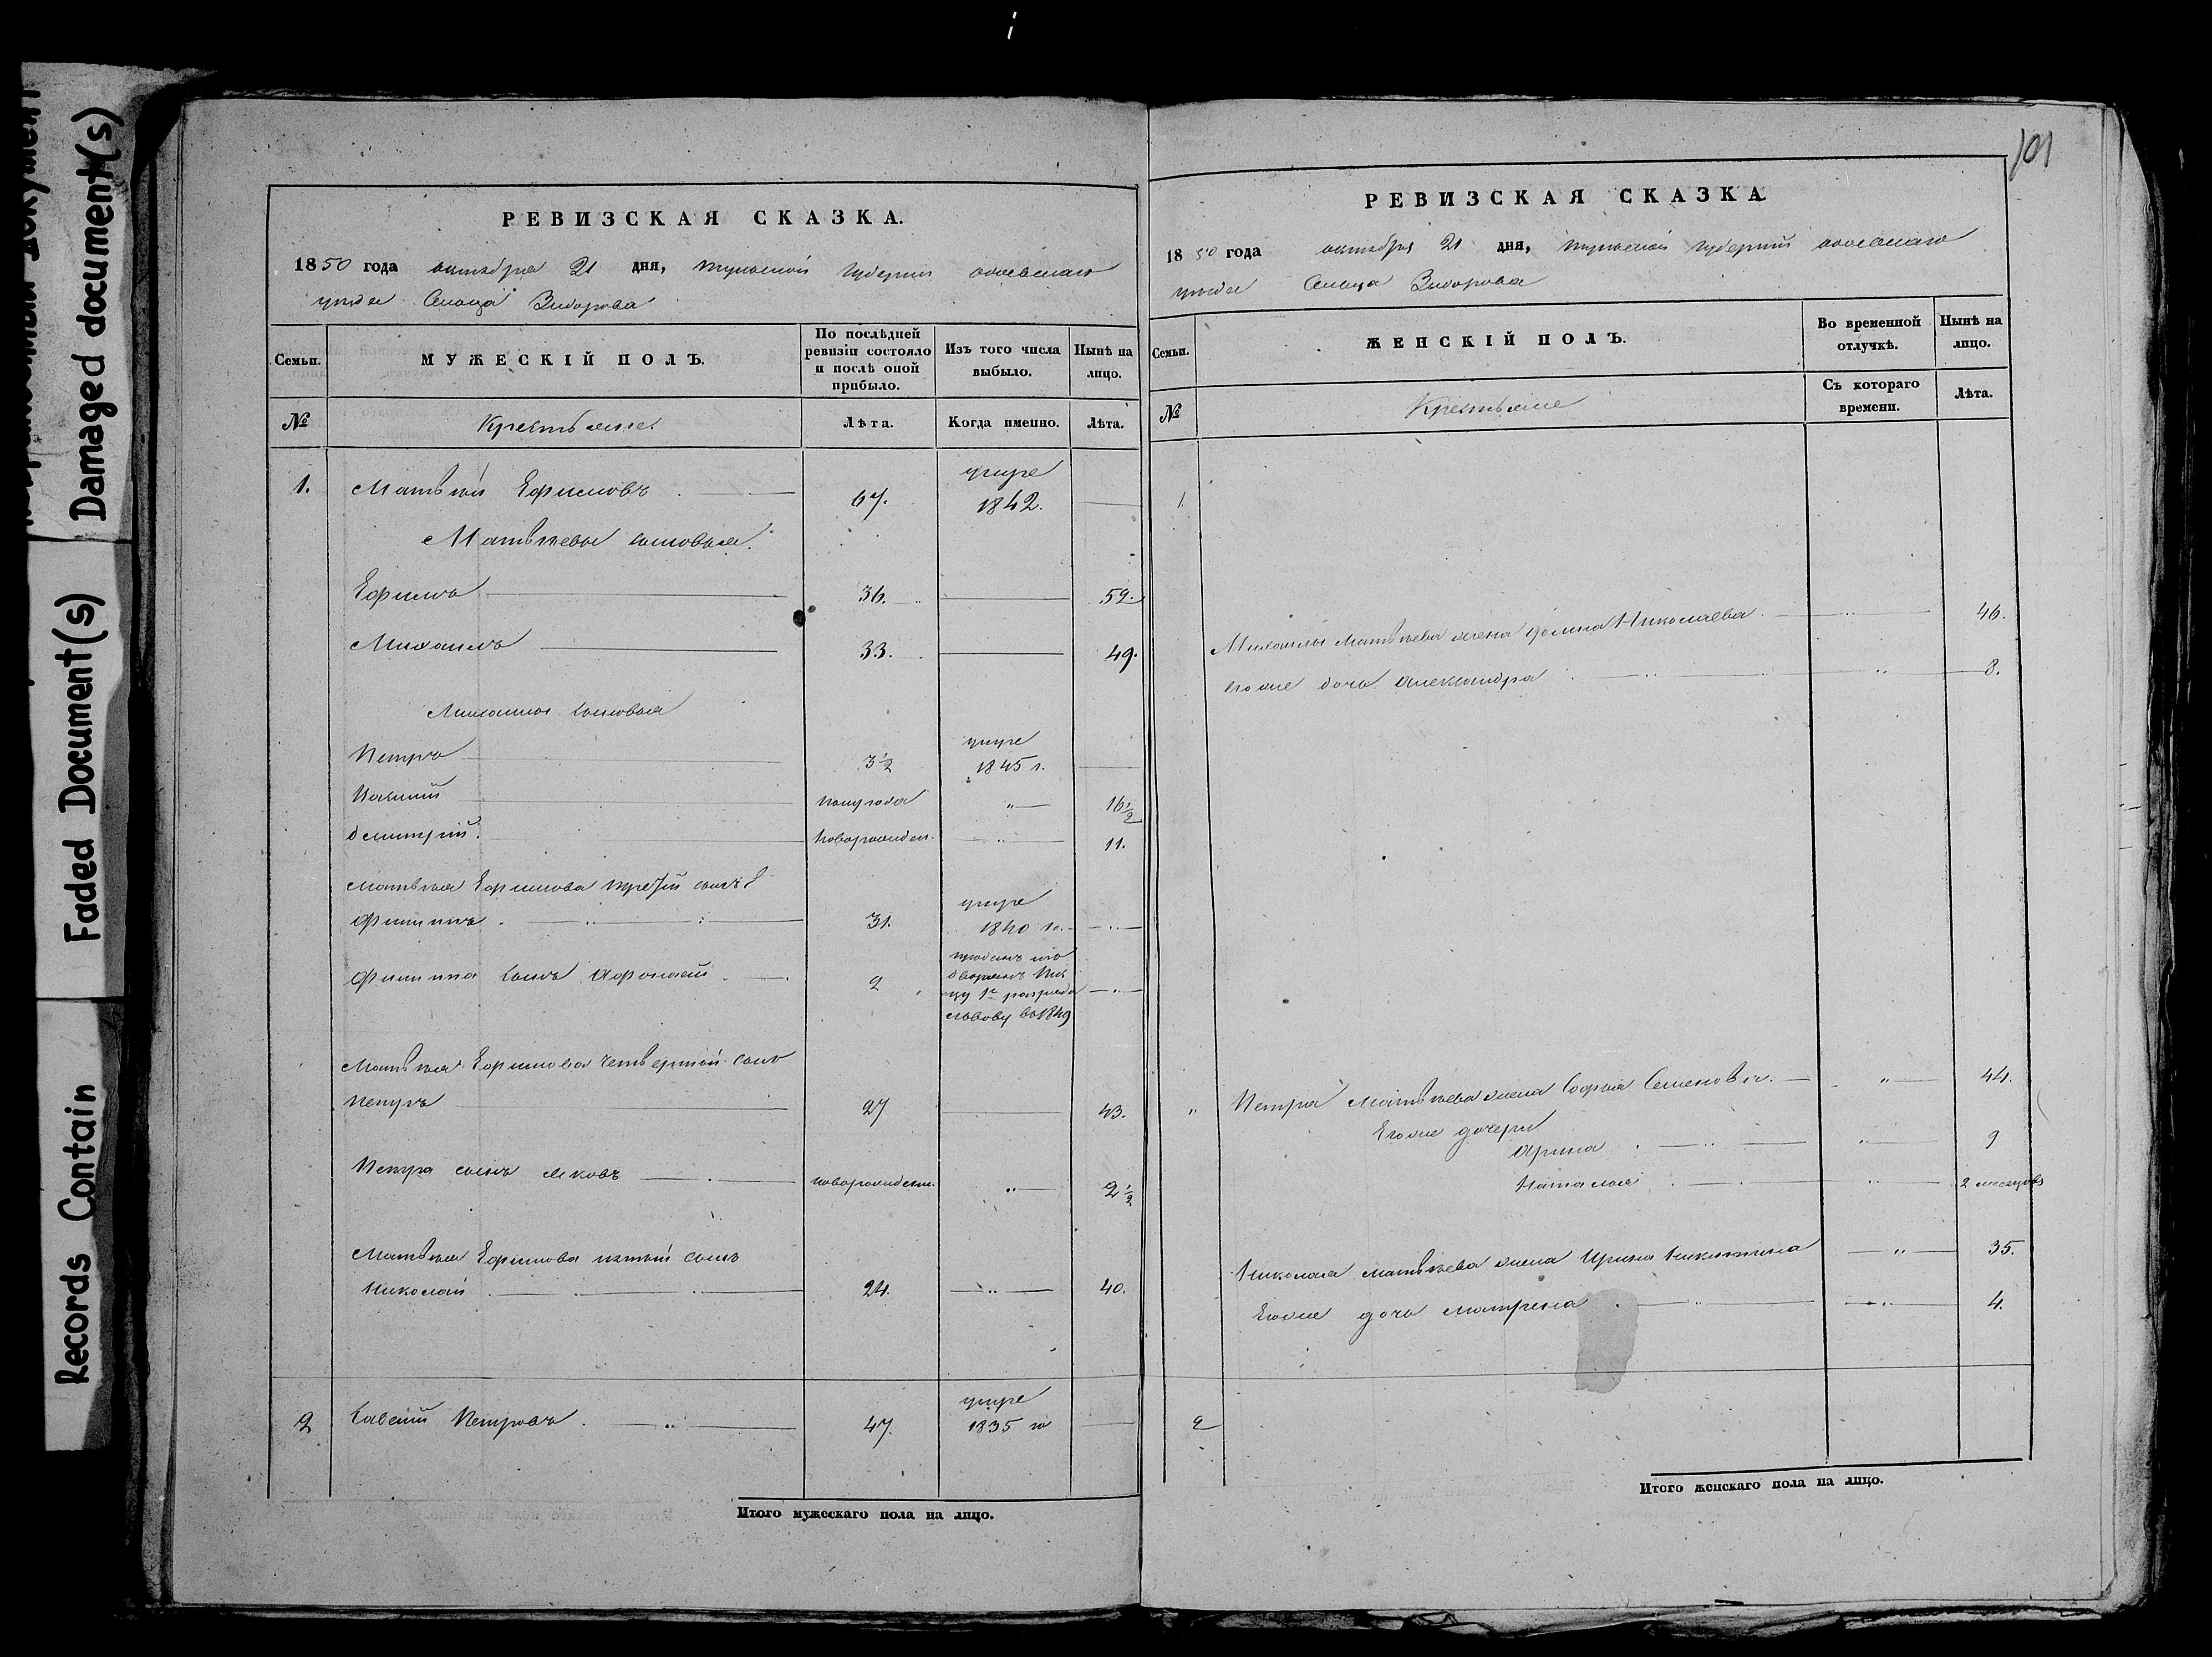 Records Contain Faded Document(s) Damaged document(s)
101
РЕВИЗСКАЯ СКАЗКА.
1850 года октября 21 дня, тульской губернии
уезда Сельца
Семьи. МУЖЕСКІЙ ПОЛЪ. По послѣдней ревизіи состояло и послѣ оной прибыло. Изъ того числа выбыло. Нынѣ на лицо.
№ Крестьяне. Лѣта. Когда именно. Лѣта.
1. Матвѣй Ефимовъ 67. умре 1842.
Матвѣевы сыновья.
Ефимъ 36. 52.
Михаилъ 33. 49.
Михаилы сыновья
Петръ 3 1/2 умре 1845 г.
полугода 16 1/2
дмитрій новорожден. 11.
Матвѣя Ефимова третій сынъ
Филипъ 31. умре 1840 го.
Филипа сынъ Афонасій 2
1849
Матвѣя Ефимова четвертой сынъ
Петръ 27 43.
Петра сынъ Яковъ новорожден. 2 1/2
Матвѣя Ефимова пятый сынъ
Николай 24. 40.
2 Савелій Петровъ. 47. умре 1835 го
Итого мужескаго пола на лицо.
РЕВИЗСКАЯ СКАЗКА.
1850 года октября 21 дня, тульской губерніи
уезда Сельца
Семьи. ЖЕНСКІЙ ПОЛЪ. Во временной отлучкѣ. Нынѣ на лицо.
№ Крестьяне Съ котораго времени. Лѣта.
1.
Михаилы Матвѣева жена Николаева 46.
его же дочь Александра 8.
" Петра Матвѣева жена Софья Семенова. " 44.
Его же дочери
Арина 9
Наталья 2 месяцовъ
Николая Матвѣева жена Ирина Никитина " 35.
Его же дочь Матрена 4.
2
Итого женскаго пола на лицо.